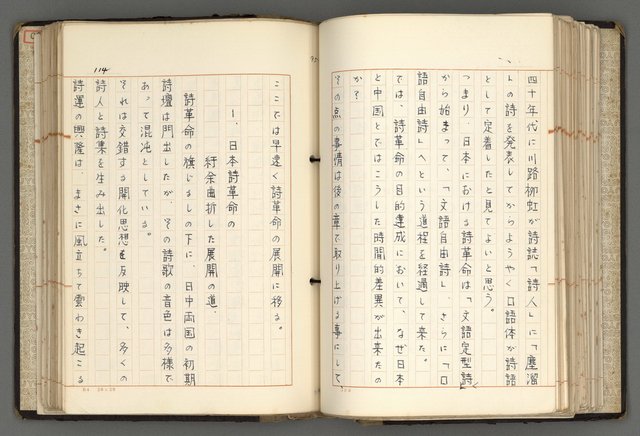 四十年代に川路柳虹が詩誌「詩人」に「塵溜
」の詩を発表してからようやく口語体が詩語
として定着したと見てよいと思う。
つまり、日本における詩革命は「文語定型詩」
から始まって、「文語自由詩」、さらに「口
語自由詩」へという道程を経過して来た。
では、詩革命の目的達成において、なぜ日本
と中国とではこうした時間的差異が出来たの
か？
その点の事情は後の章で取り上げる事にして、
114
ここでは早速く詩革命の展開に移る。
1、日本詩革命の
紆余曲折した展開の道、
詩革命の旗じるしの下に、日中両国の初期
詩壇は門出したが、その詩歌の音色は多様で
あって混沌としている。
それは交錯する開化思想を反映して、多くの
詩人と詩集を生み出した。
詩運の興隆は、まさに風立ちて雲わき起こる